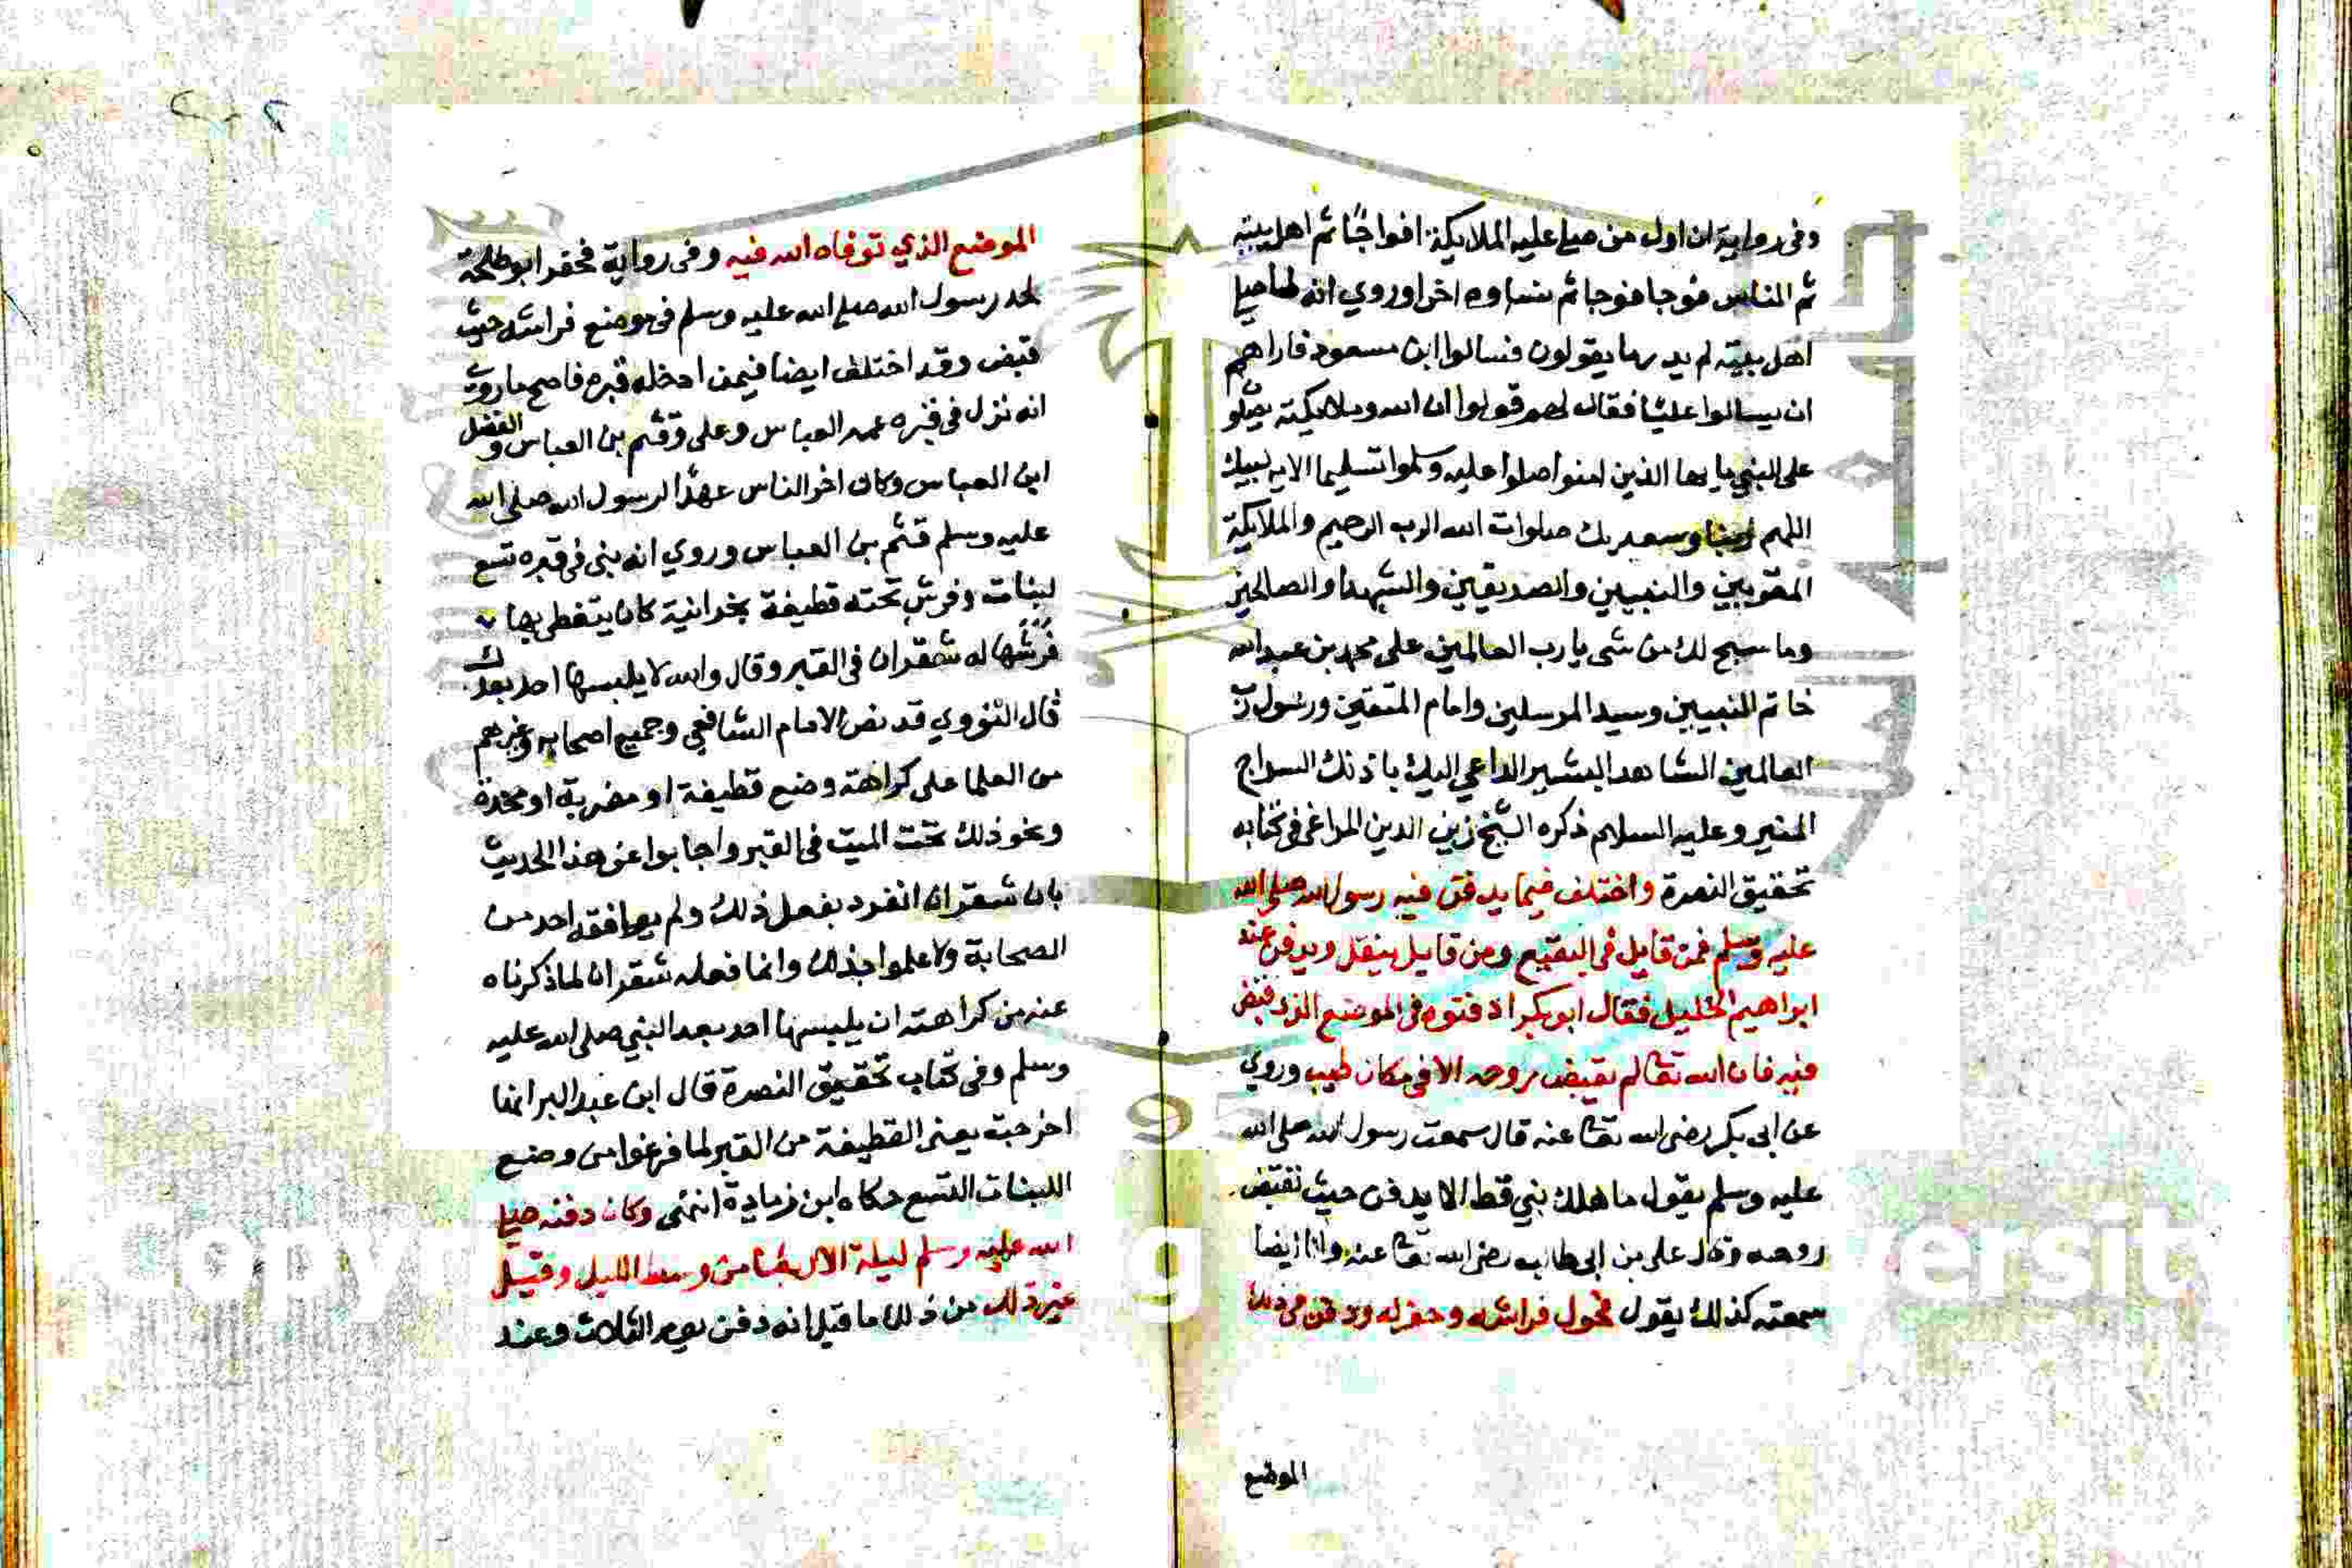 وفى رواية ان اول من صلى عليه الملايكة افواجًا ثم اهل بيته
ثم الناس فوجا فوجا ثم نساوه اخرا وروي انه لما صلى
اهل بيته لم يدر ما يقولون فسالوا ابن مسعود فاراهم
ان يسالوا عليًا فقال لهم قولوا ان الله وملايكته يصلو
على النبي يا يها الذين امنوا صلوا عليه وسلموا تسليما الايه لبيك
اللهم ربنا وسعديك صلوات الله البر الرحيم والملايكة
المقربين والنبيين والصديقين والشهدا والصالحين
وما سبح لك من شى يا رب العالمين على محمد بن عبد الله
خاتم النبيين وسيد المرسلين وامام المتقين ورسول رب
العالمين الشاهد البشير الداعي اليك باذنك السراج
المنير وعليه السلام ذكره الشيخ زين الدين المراغى فى كتابه
تحقيق النصرة واختلف فيما يدفن فيه رسول الله صلى الله
عليه وسلم فمن قايل فى البقيع ومن قايل ينقل ويدفن عند
ابراهيم الخليل فقال ابو بكر ادفنوه فى الموضع الذى قبض
فيه فان الله تعالى لم يقبض روحه الا فى مكان طيب وروي
عن ابى بكر رضى الله تعالى عنه قال سمعت رسول الله صلى الله
عليه وسلم يقول ما هلك نبي قط الا يدفن حيث تقبض
روحه وقال على بن ابى طالب رضى الله تعالى عنه وانا ايضا
سمعته كذلك يقول فحول فراشه وحفر له ودفن فى ذلك
الموضع
الموضع الذي توفاه الله فيه وفى رواية فحفر ابو طلحة
لحد رسول الله صلى الله عليه وسلم فى موضع فراشه حيث
قبض وقد اختلف ايضا فيمن ادخله قبره فاصح ما روي
انه نزل فى قبره عمه العباس وعلى وقثم بن العباس والفضل
ابن العباس وكان اخر الناس عهدًا لرسول الله صلى الله
عليه وسلم قثم بن العباس وروي انه بنى فى قبره تسع
لبنات وفرش تحته قطيفة نجرانية كان يتغطى بها
فرشها له شقران فى القبر وقال والله لا يلبسها احد بعدك
قال النووي قد نص الامام الشافعي وجميع اصحابه وغيرهم
من العلما على كراهة وضع قطيفة او مضربة او مخدة
ونحو ذلك تحت الميت فى القبر واجابوا عن هذا الحديث
بان شقران انفرد بفعل ذلك ولم يوافقه احد من
الصحابة ولا علموا بذلك وانما فعله شقران لما ذكرناه
عنه من كراهته ان يلبسها احد بعد النبي صلى الله عليه
وسلم وفى كتاب تحقيق النصرة قال ابن عبد البر انها
اخرجت يعنى القطيفة من القبر لما فرغوا من وضع
اللبنات التسع حكاه ابن زيادة انتهى وكان دفنه صلى
الله عليه وسلم ليلة الاربعا من وسط الليل وقيل
غير ذلك من ذلك ما قيل انه دفن يوم الثلاث وعند